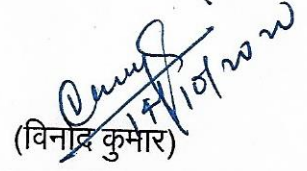 14/10/2020
(विनोद कुमार)